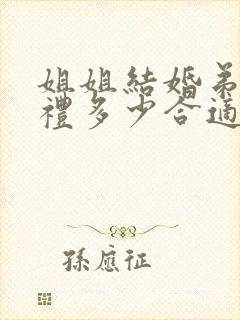 姐姐結婚弟
禮多少合適
孫應征